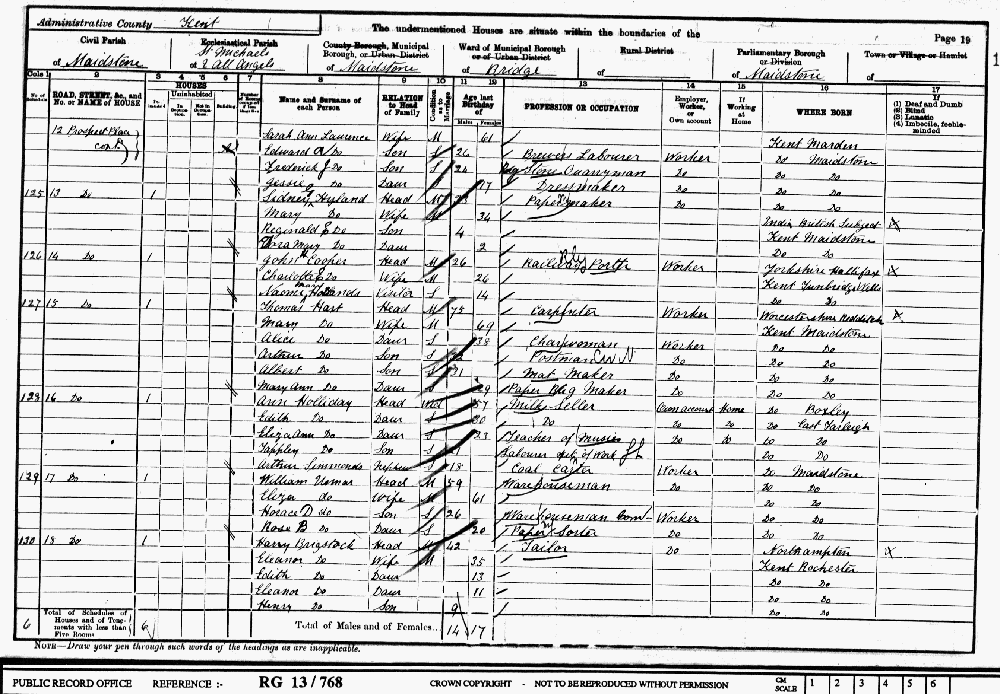 Administrative County Kent
The undermentioned Houses are situate within the boundaries of the
Page 19
Civil Parish of Maidstone
Ecclesiastical Parish of St Michaels & All Angels
County Borough, Municipal Borough, or Urban District of Maidstone
Ward of Municipal Borough or of Urban District of Bridge
Rural District of
Parliamentary Borough or Division of Maidstone
Town or Village or Hamlet of
Cols 1 2 3 4 5 6 7 8 9 10 11 12 13 14 15 16 17
No. of Schedule ROAD, STREET, &c., and No. or NAME of HOUSE HOUSES Inhabited Uninhabited In Occupation Not in Occupation Building Name and Surname of each Person RELATION to Head of Family Condition as to Marriage Age last Birthday of Males Females PROFESSION OR OCCUPATION Employer, Worker, or Own account If Working at Home WHERE BORN If (1) Deaf and Dumb (2) Blind (3) Lunatic (4) Imbecile, feeble-minded
12 Prospect Place Sarah Ann Lawrence Wife M 61 Kent Marden
cont. Edward Do Son S 26 Brewers Labourer Worker Do Maidstone
Frederick J Do Son S 24 Stone Quarryman Do Do Do
Jessie Do Daur 17 Dressmaker Do Do Do
125 13 Do 1 Sidney Hyland Head M Paper maker Do Do Do
Mary Do Wife 34 India British Subject
Reginald E Do Son 4 Kent Maidstone
Dora Mary Do Daur 2 Do Do
126 14 Do 1 John Cooper Head M 26 Railway Porter Worker Yorkshire Hallifax
Charlotte E Do Wife M 26 Kent Tunbridge Wells
Naomi Hollands Visitor S 14 Do Do
127 15 Do 1 Thomas Hart Head M 75 Carpenter Worker Worcestershire Redditch
Mary Do Wife M 69 Kent Maidstone
Alice Do Daur S 38 Charwoman Worker Do Do
Arthur Do Son S Postman Do Do Do
Albert Do Son S 21 Mat Maker Do Do Do
Mary Ann Do Daur S 29 Paper Bag Maker Do Do Do
128 16 Do 1 Ann Holliday Head Wd 57 Milk Seller Own account Home Do Boxley
Edith Do Daur S 20 Do Do Do Do East Farleigh
Eliza Ann Do Daur S 23 Teacher of Music Do Do Do Do
Do Son S Labourer out of Work Do Do
Arthur Simmonds Nephew S 18 Coal Carter Worker Do Maidstone
129 17 Do 1 William Head M 59 Warehouseman Do Do Do
Eliza do Wife M 61 Do Do
Horace D do Son S 26 Warehouseman Worker Do Do
Rose B Do Daur S 20 Paper Sorter Do Do Do
130 18 Do 1 Harry Brigstock Head M 42 Tailor Do Northampton
Eleanor Do Wife M 35 Kent Rochester
Edith Do Daur 13 Do Do
Eleanor Do Daur 11 Do Do
Henry Do Son 9 Do Do
6 Total of Schedules of Houses and of Tenements with less than Five Rooms 6 Total of Males and of Females... 14 17
NOTE—Draw your pen through such words of the headings as are inapplicable.
PUBLIC RECORD OFFICE REFERENCE :- RG 13/768 CROWN COPYRIGHT - NOT TO BE REPRODUCED WITHOUT PERMISSION CM SCALE 1 2 3 4 5 6